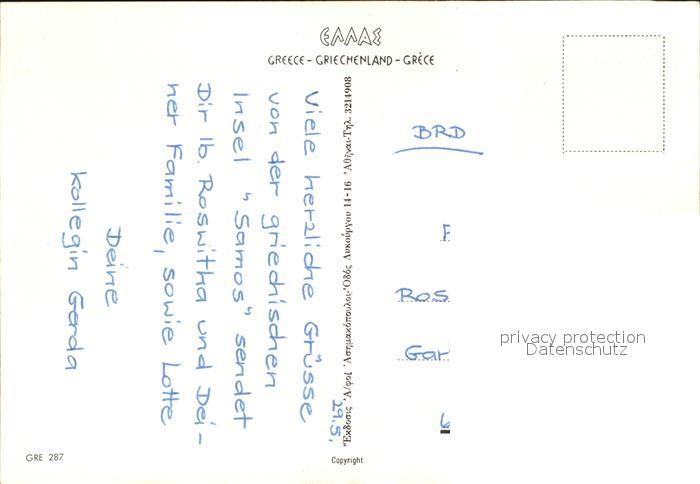 ΕΛΛΑΣ
GREECE - GRIECHENLAND - GRÈCE
29.5.
Viele herzliche Grüsse
von der griechischen
Insel "Samos" sendet
Dir lb. Roswitha und Dei-
ner Familie, sowie Lotte
Deine
Kollegin Gerda
Ἔκδοσις Ἀ/φοὶ Ἀσημακόπουλοι Ὁδὸς Λυκούργου 14-16 Ἀθῆναι-Τηλ. 3214908
BRD
F
Ros
Gar
privacy protection
Datenschutz
GRE 287
Copyright